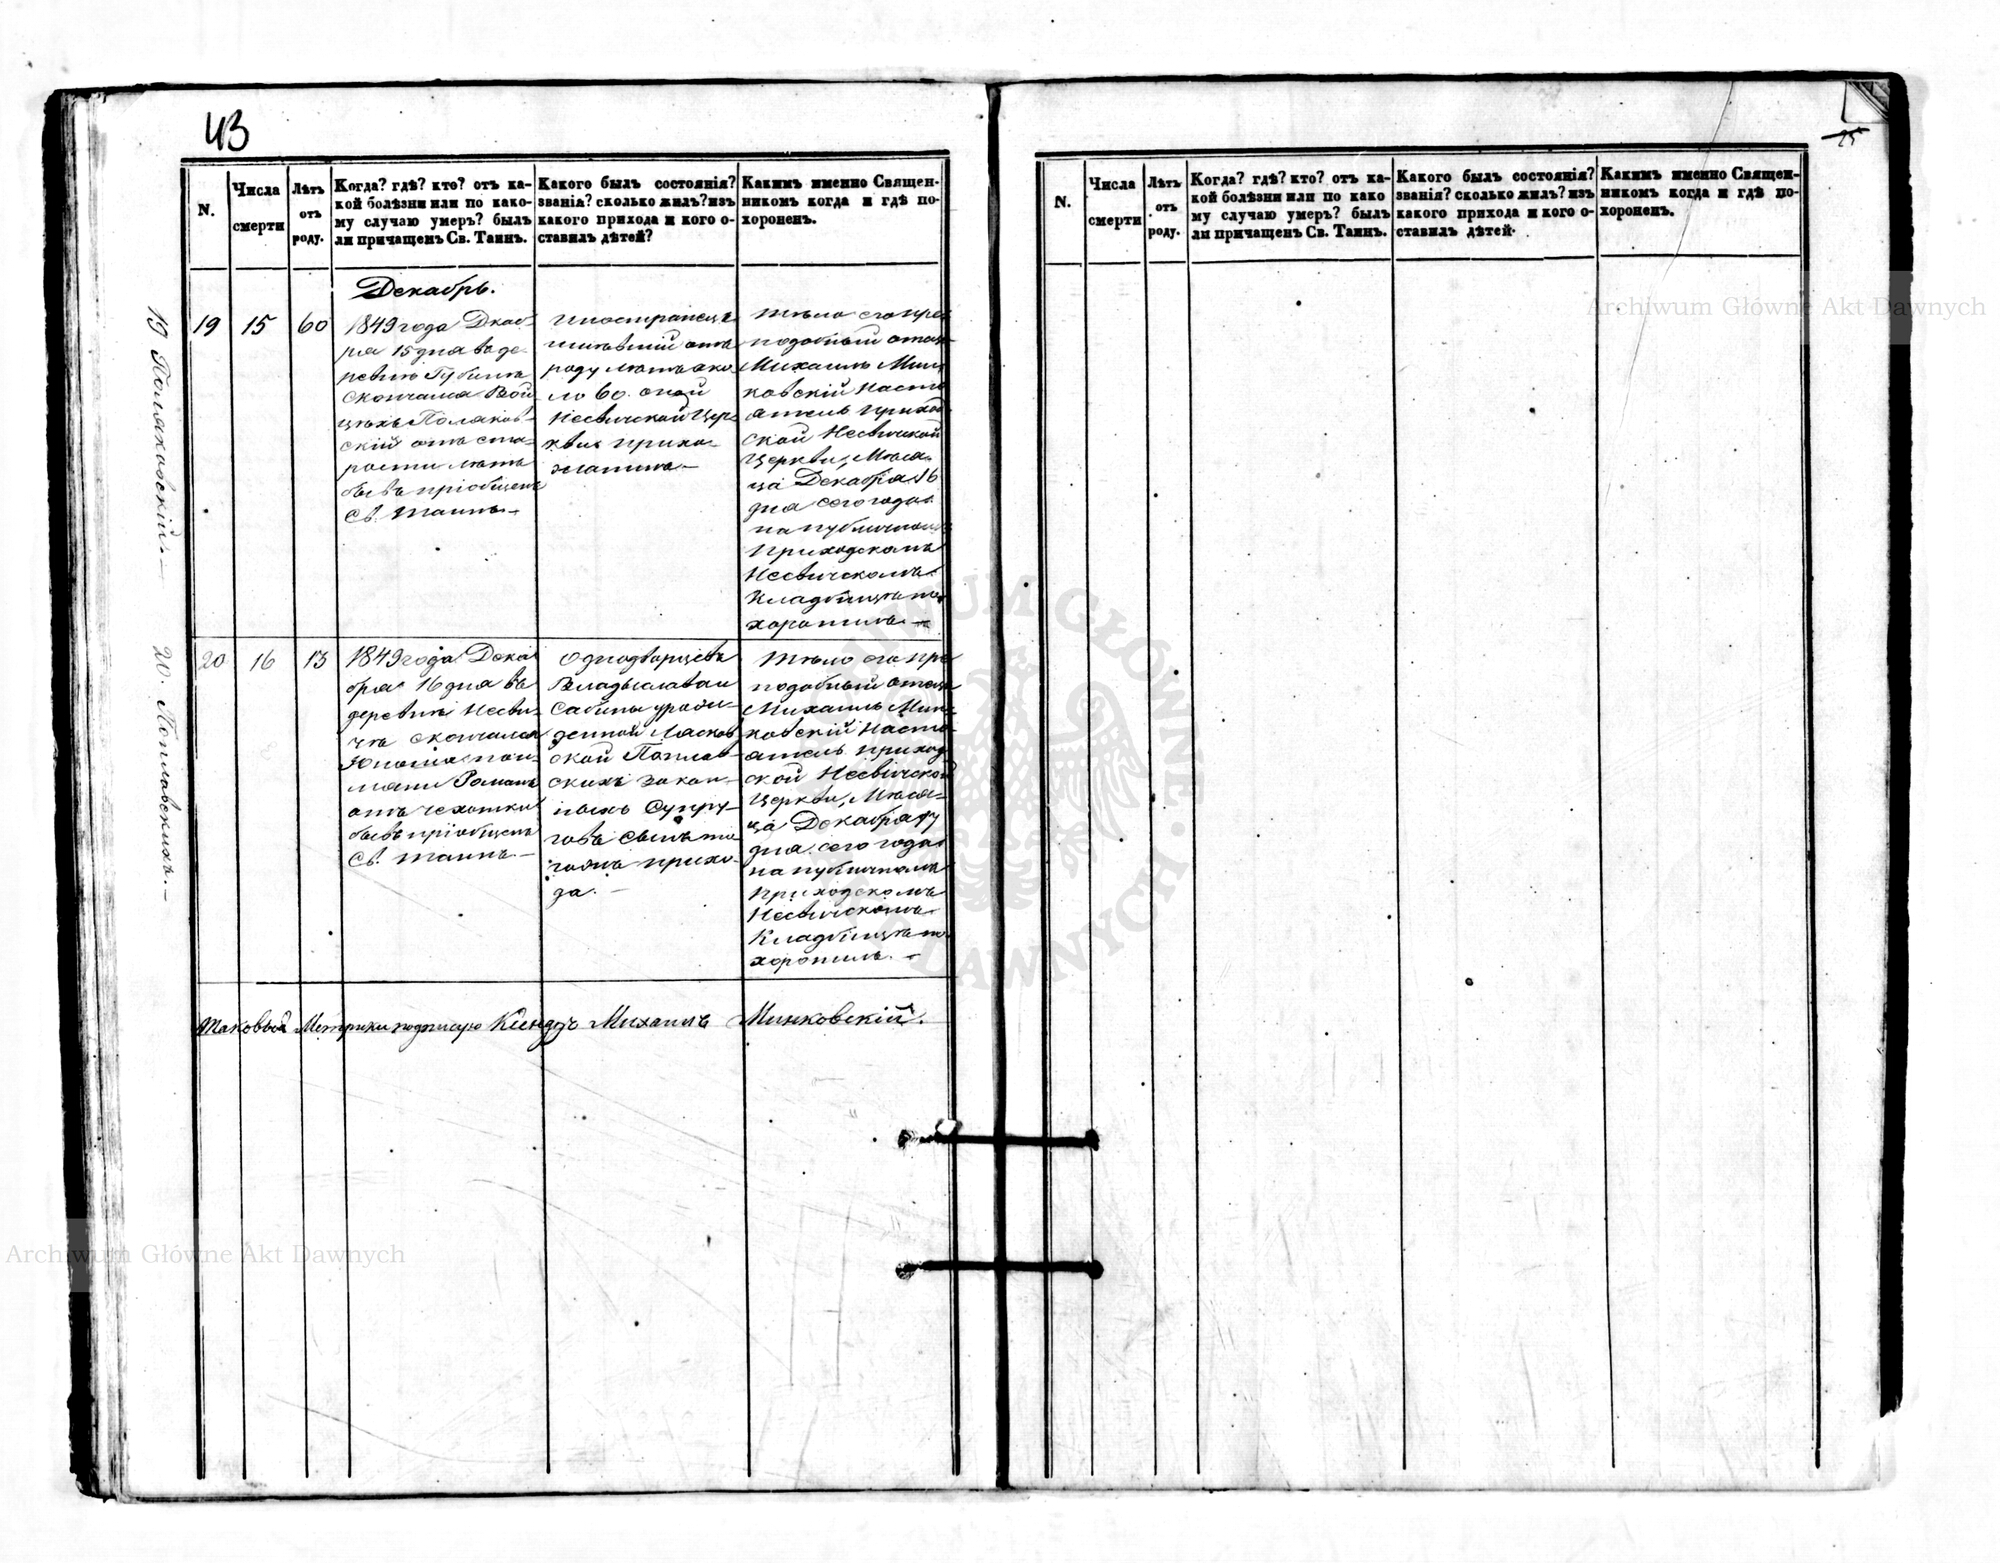 43
N.
Числа смерти
Лѣтъ отъ роду.
Когда? гдѣ? кто? отъ ка-
кой болѣзни или по како-
му случаю умеръ? былъ
ли причащенъ Св. Таинъ.
Какого былъ состоянія?
званія? сколько жилъ? изъ
какого прихода и кого о-
ставилъ дѣтей?
Какимъ именно Священ-
никомъ когда и гдѣ по-
хороненъ.
Декабрь.
19 Поляковскій.—
19
15
60
1849 года Дкаб-
ря 15 дня въ де-
ревни Губинѣ
скончался Вой
цѣхъ Поляков-
скій отъ ста-
рости лѣтъ
бывъ пріобщенъ
Св. Таинъ.—
Иностранецъ
имѣвшій отъ
роду лѣтъ око
ло 60. оной
Несвичской Цер-
кви прихо-
жанинъ.—
Тѣло его пре
подобный отецъ
Михаилъ Мин
ковскій Насто
ятель приход
ской Несвичской
Церкви, Мѣся-
ца Декабря 16
дня сего года
на публичномъ
Приходскомъ
Несвичскомъ
Кладбищѣ по
хоронилъ.—
20. Поплавскихъ.—
20
16
13
1849 года Дека
бря 16 дня въ
деревни Несви-
чѣ скончался
Юноша
Романъ
отъ чехотки
бывъ пріобщенъ
Св. Таинъ.—
Однодворцевъ
Владыслава и
Сабины урожд-
денной Ласков
ской Поплав-
скихъ закон-
ныхъ Супру-
говъ сынъ то
гожъ прихо-
да.—
Тѣло его пре
подобный отецъ
Михаилъ Мин-
ковскій Насто-
ятель приход
ской Несвичской
Церкви, Мѣся-
ца Декабря 17
дня сего года
на публичномъ
Приходскомъ
Несвичскомъ
Кладбищѣ по
хоронилъ.—
Таковые Метрики подписую Ксендзъ Михаилъ Минковскій.
25
N.
Числа смерти
Лѣтъ отъ роду.
Когда? гдѣ? кто? отъ ка-
кой болѣзни или по како
му случаю умеръ? былъ
ли причащенъ Св. Таинъ.
Какого былъ состоянія?
званія? сколько жилъ? изъ
какого прихода и кого о-
ставилъ дѣтей.
Какимъ именно Священ-
никомъ когда и гдѣ по-
хороненъ.
Archiwum Główne Akt Dawnych
ARCHIWUM GŁÓWNE AKT DAWNYCH
Archiwum Główne Akt Dawnych